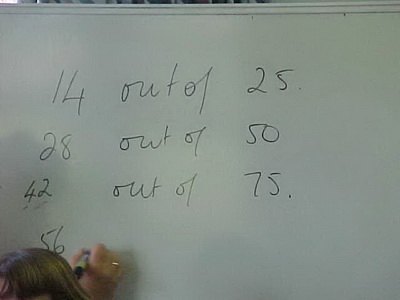 14 out of 25.
28 out of 50
42 out of 75.
56